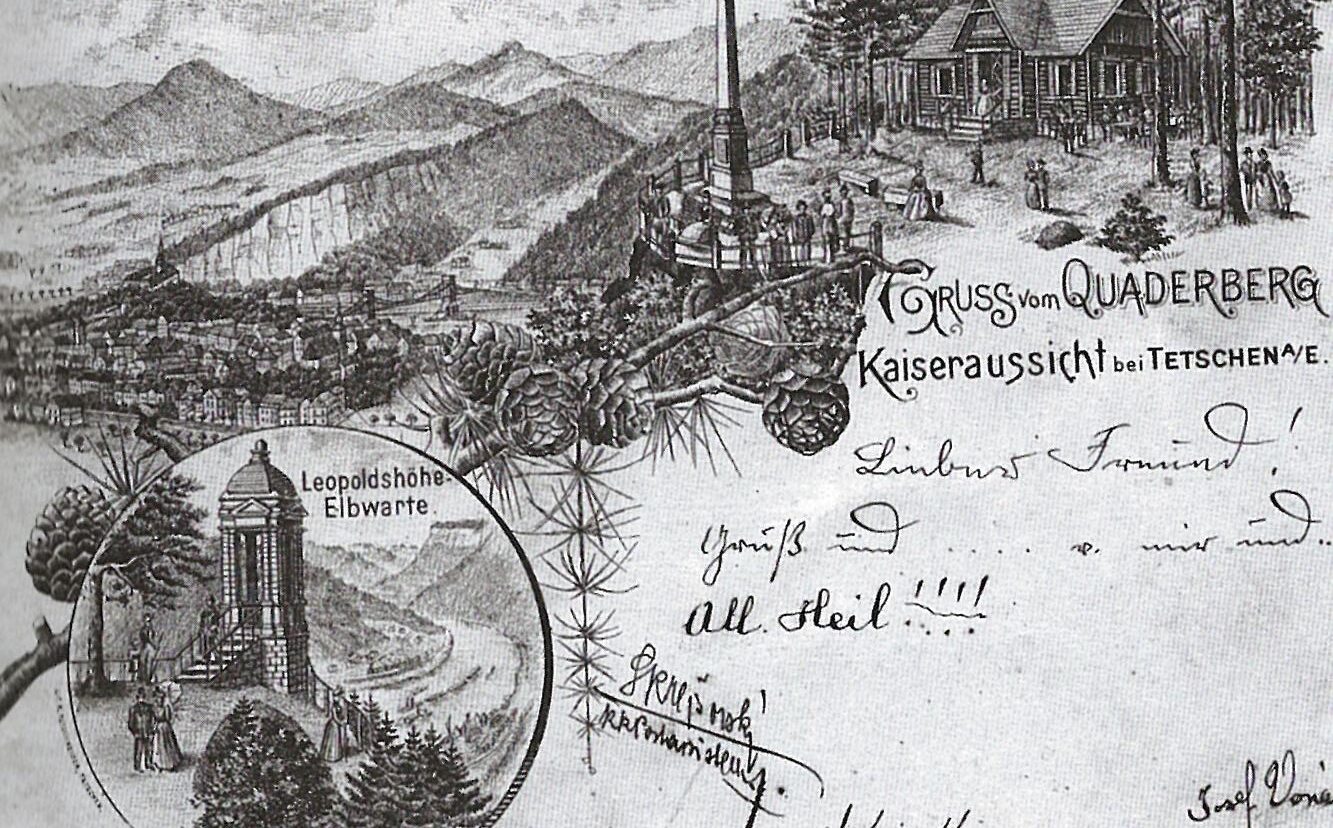 GRUSS vom QUADERBERG
Kaiseraussicht bei TETSCHEN A/E.
Leopoldshöhe-
Elbwarte.
Lieber Freund!
Gruß und .... v. mir und..
All. Heil !!!!
Josef